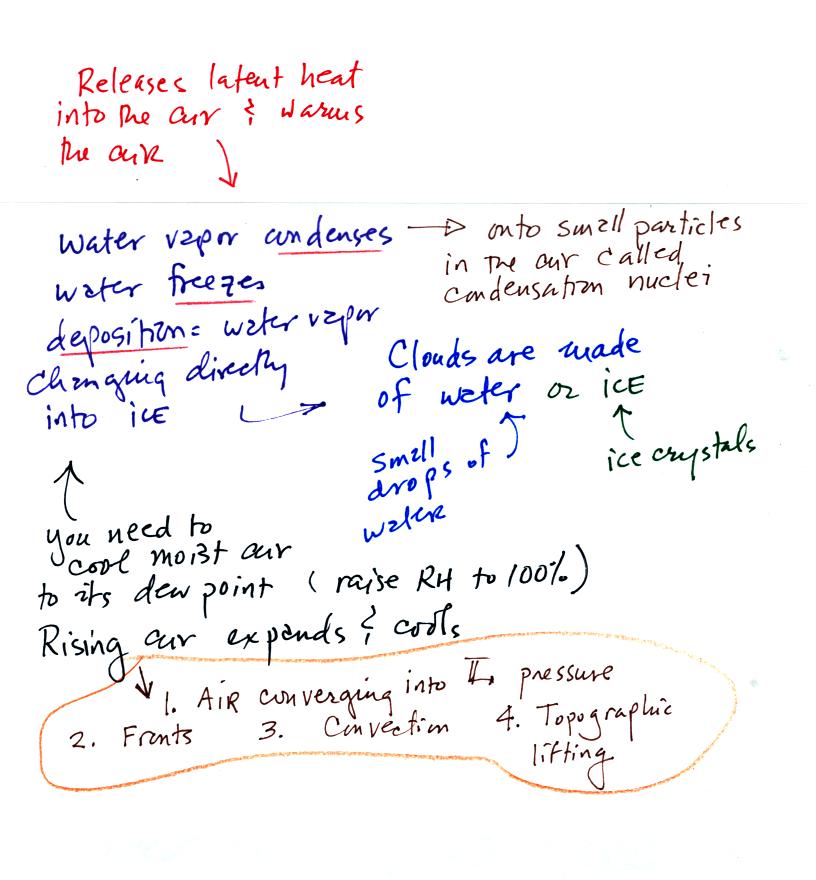 Releases latent heat
into the air & warms
the air
water vapor condenses → onto small particles
in the air called
condensation nuclei
water freezes
deposition = water vapor
changing directly
into ice
Clouds are made
of water or ice
small
drops of
water
ice crystals
you need to
cool moist air
to its dew point (raise RH to 100%)
Rising air expands & cools
1. Air converging into L pressure
2. Fronts 3. Convection 4. Topographic
lifting